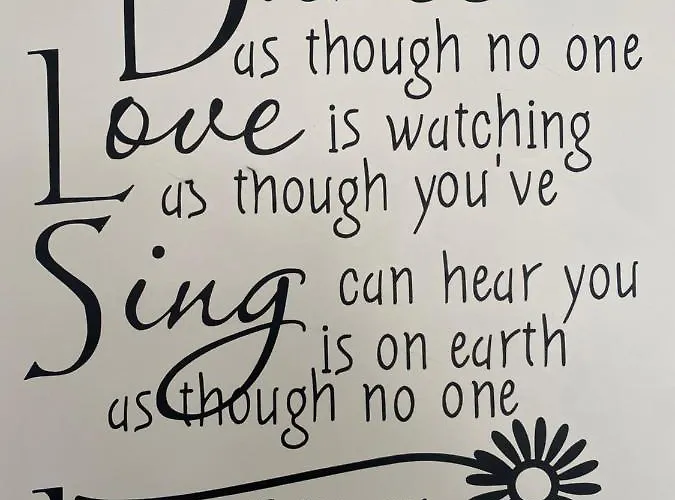 as though no one
Love is watching
as though you've
Sing can hear you
is on earth
as though no one